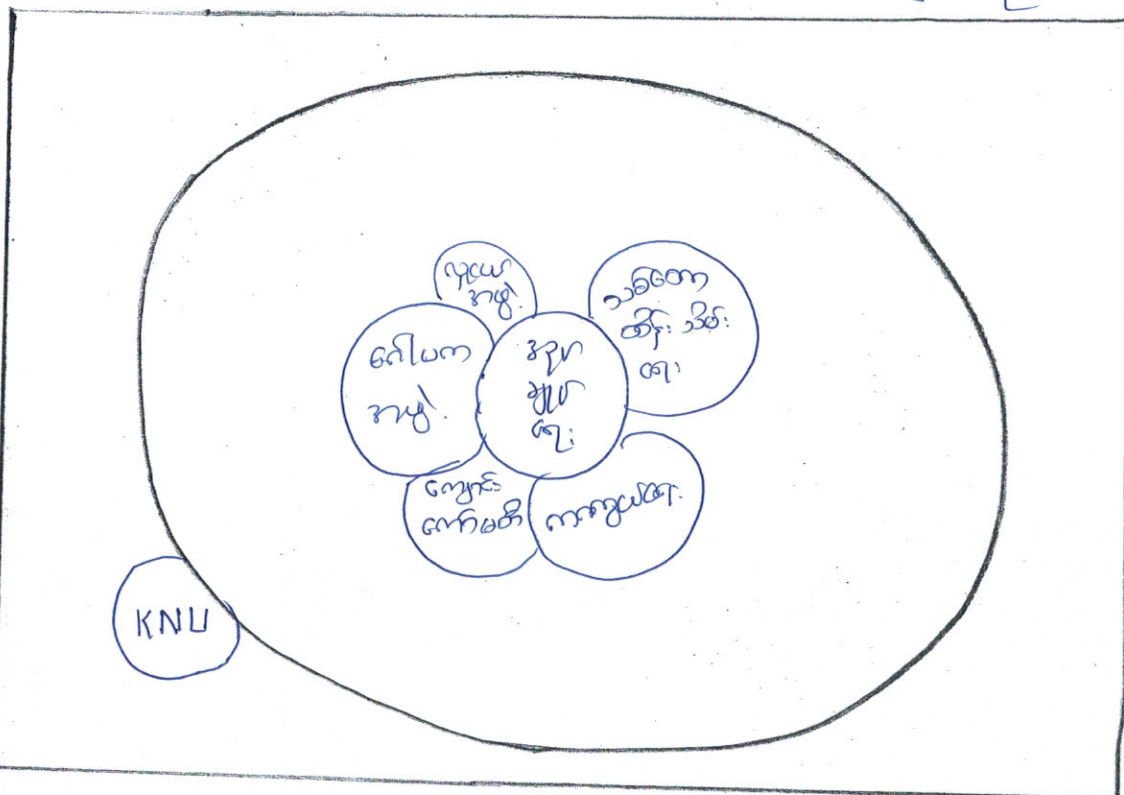 လူငယ်
အဖွဲ့
သစ်တော
ထိန်းသိမ်း
ရေး
ဂေါပက
အဖွဲ့
အုပ်
ချုပ်
ရေး
ကျောင်း
ကော်မတီ
ကာကွယ်ရေး
KNU